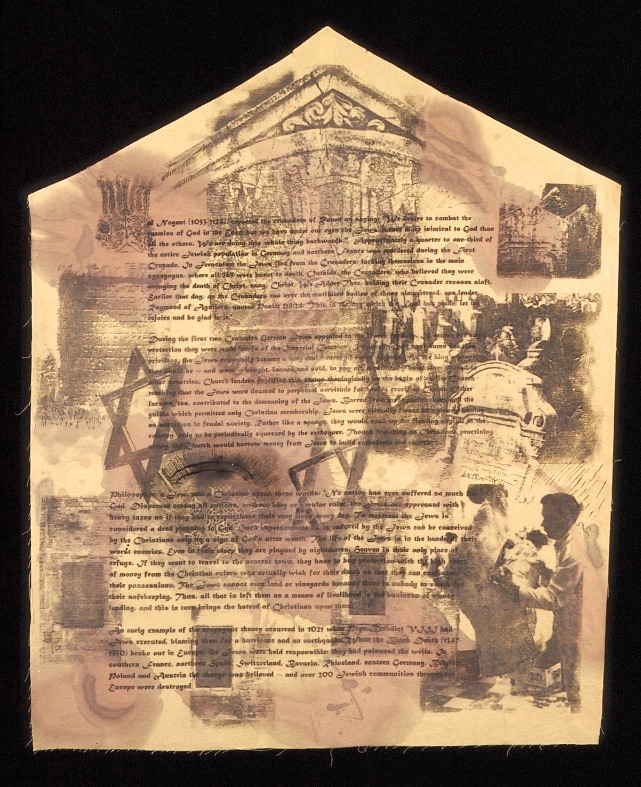 of Nogent (1053-1124) reported the crusaders of Rouen as saying: "We desire to combat the
enemies of God in the East but we have under our eyes the Jews, a race more inimical to God than
all the others. We are doing this whole thing backwards." Approximately a quarter to one-third of
the entire Jewish population in Germany and northern France was murdered during the First
Crusade. In Jerusalem the Jews fled from the Crusaders, locking themselves in the main
synagogue, where all 969 were burnt to death. Outside, the Crusaders, who believed they were
avenging the death of Christ, sang, Christ, We Adore Thee, holding their Crusader crosses aloft.
Earlier that day, the Crusaders ran over the mutilated bodies of those slaughtered, one leader,
Raymond of Aguilers, quoted Psalm 118:24: "This is the day which the Lord has made; let us
rejoice and be glad in it."
During the first two Crusades German Jews appealed to the
protection they were made serfs of the Imperial
privilege, the Jews originally became a
be — and were — bought, loaned and sold, to pay off
other countries. Church leaders justified this status theologically on the basis of
teaching that the Jews were doomed to perpetual servitude for having crucified Christ. Other
factors, too, contributed to the demeaning of the Jews. Barred from
guilds which permitted only Christian membership, Jews were
in feudal society. Rather like a sponge, they would soak up the floating capital in the
country only to be periodically squeezed by the exchequer. Though practising
Church would borrow money from Jews to build cathedrals and churches.
Philosopher, a Jew, and a Christian speak these words: "No nation has ever suffered so much
God. Dispersed among all nations, without king or secular ruler, the Jews are oppressed with
heavy taxes as if they had to repurchase their very lives every day. To mistreat the Jews is
considered a deed pleasing to God. Such imprisonment as is endured by the Jews can be conceived
by the Christians only as a sign of God's utter wrath. The life of the Jews is in the hands of their
worst enemies. Even in their sleep they are plagued by nightmares. Heaven is their only place of
refuge. If they want to travel to the nearest town, they have to buy protection with the high
of money from the Christian rulers who actually wish for their death so that they can
their possessions. The Jews cannot own land or vineyards because there is nobody to vouch for
their safekeeping. Thus, all that is left them as a means of livelihood is the business of money
lending, and this in turn brings the hatred of Christians upon them."
An early example of the theory occurred in 1021 when Pope Benedict VIII had
Jews executed, blaming them for a hurricane and an earthquake. When the Black Death (1347-
1350) broke out in Europe, the Jews were held responsible: they had poisoned the wells. In
southern France, northern Spain, Switzerland, Bavaria, Rhineland, eastern Germany, Belgium,
Poland and Austria the charge was believed — and over 200 Jewish communities throughout
Europe were destroyed